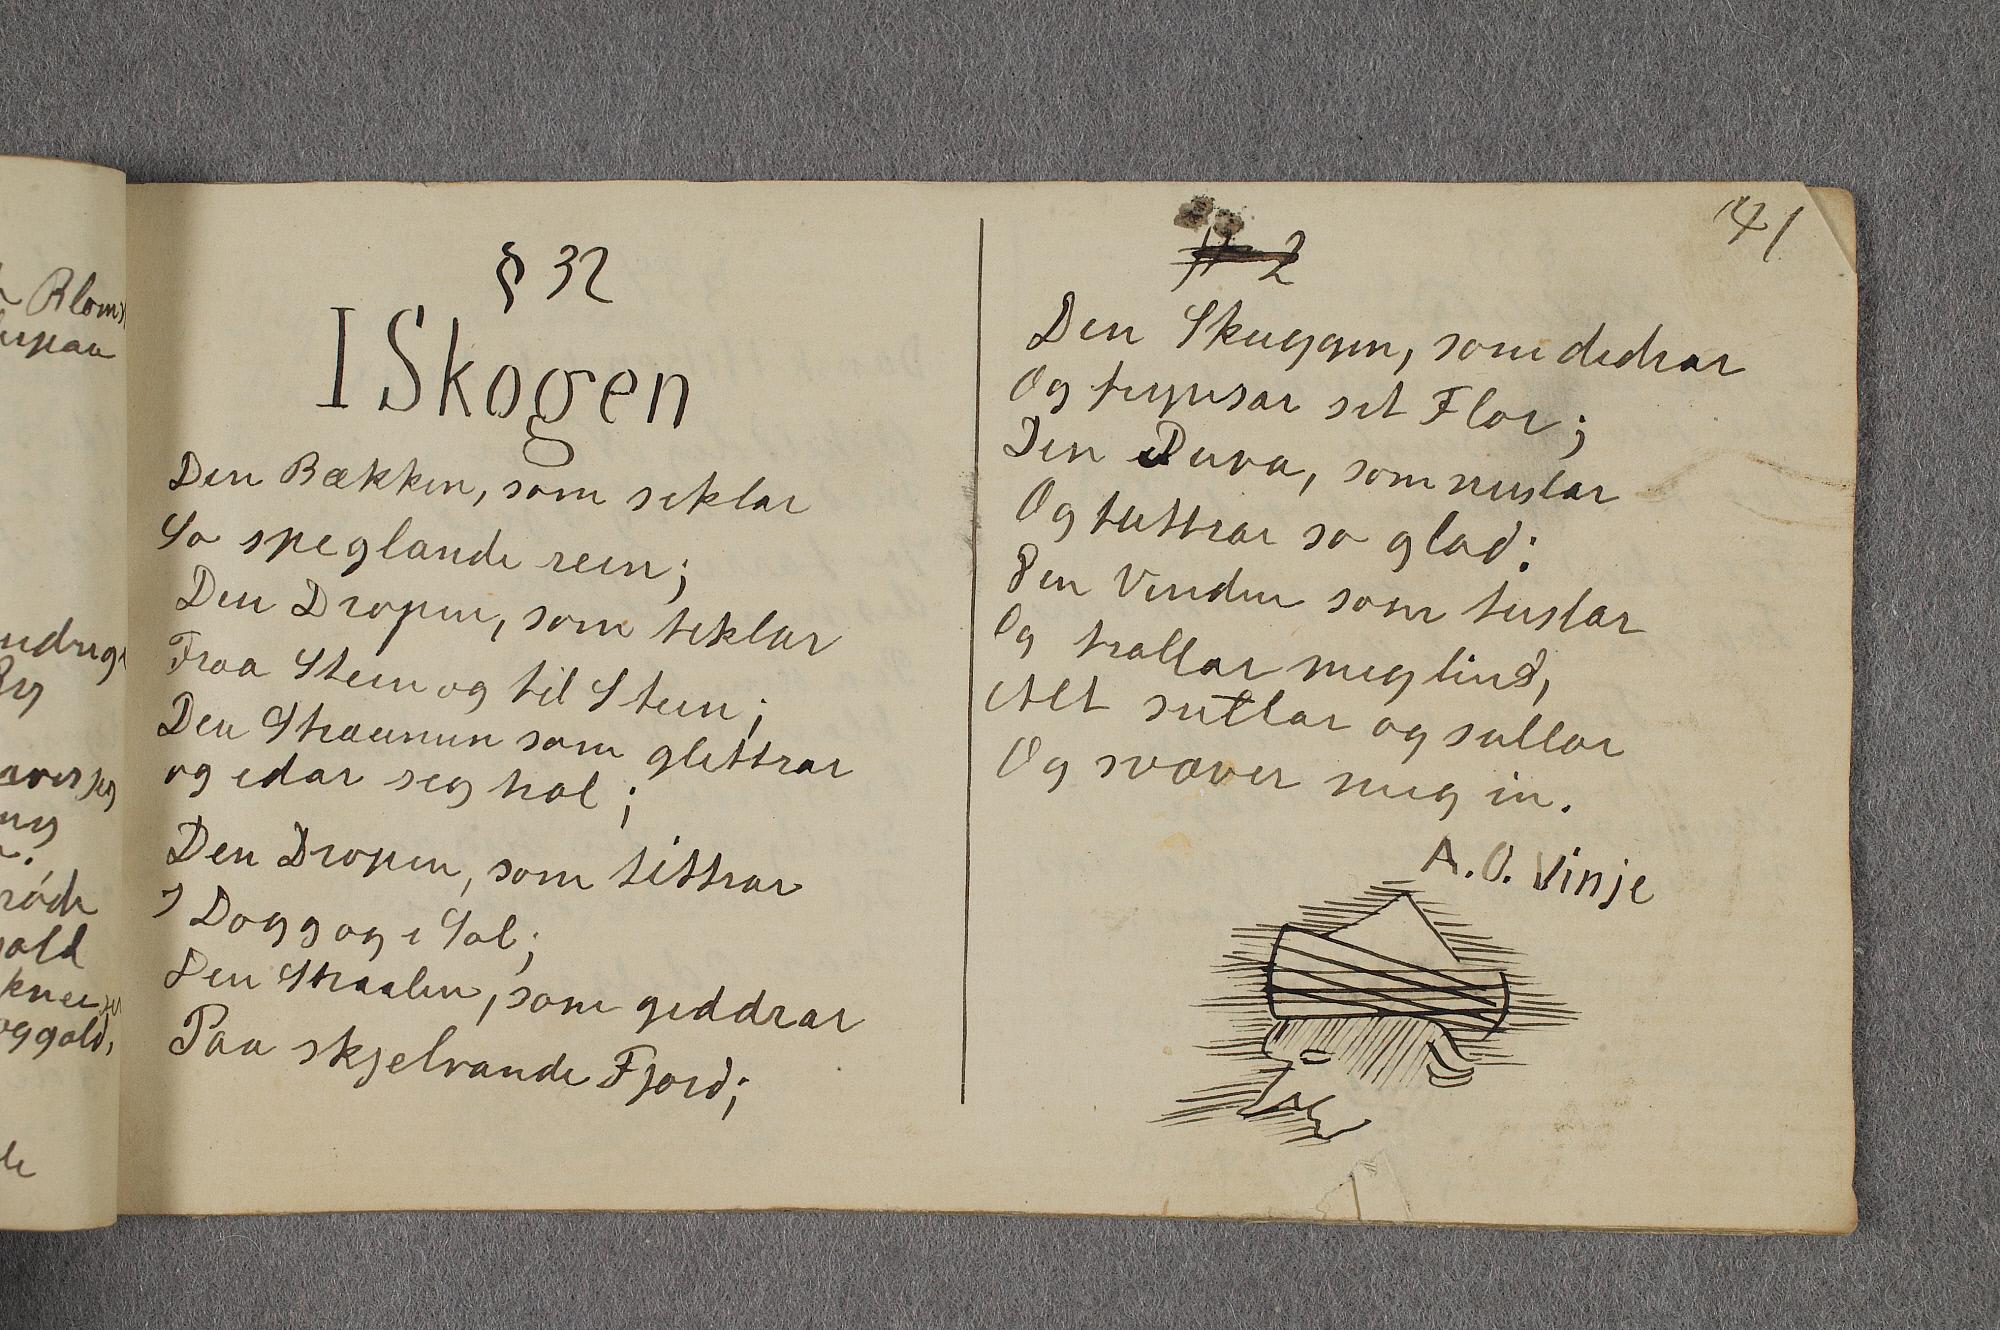 Blom
§ 32
I Skogen
Den Bækken, som seklar
So speglande rein;
Den Dropen, som teklar
Fraa Stein og til Stein;
Den Straumen som glittrar
og edar seg hol;
Den Dropen, som tittrar
I Dogg og i Sol;
Den Straalen, som giddrar
Paa skjelvande Fjord;
141
# 2
Den Skuggen, som didrar
Og sit Flor;
Den Duva, som nuslar
Og tuttrar so glad:
Den Vinden som tuslar
Og trallar meg
Alt sutlar og sullar
Og svæver meg in.
A. O. Vinje
røde